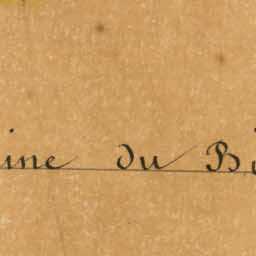 ine du B